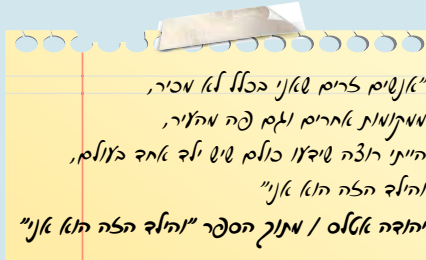 "אנשים זרים שאני בכלל לא מכיר,
ממקומות אחרים וגם פה מהעיר,
הייתי רוצה שידעו כולם שיש ילד אחד בעולם,
והילד הזה הוא אני"
יהודה אטלס / מתוך הספר "והילד הזה הוא אני"